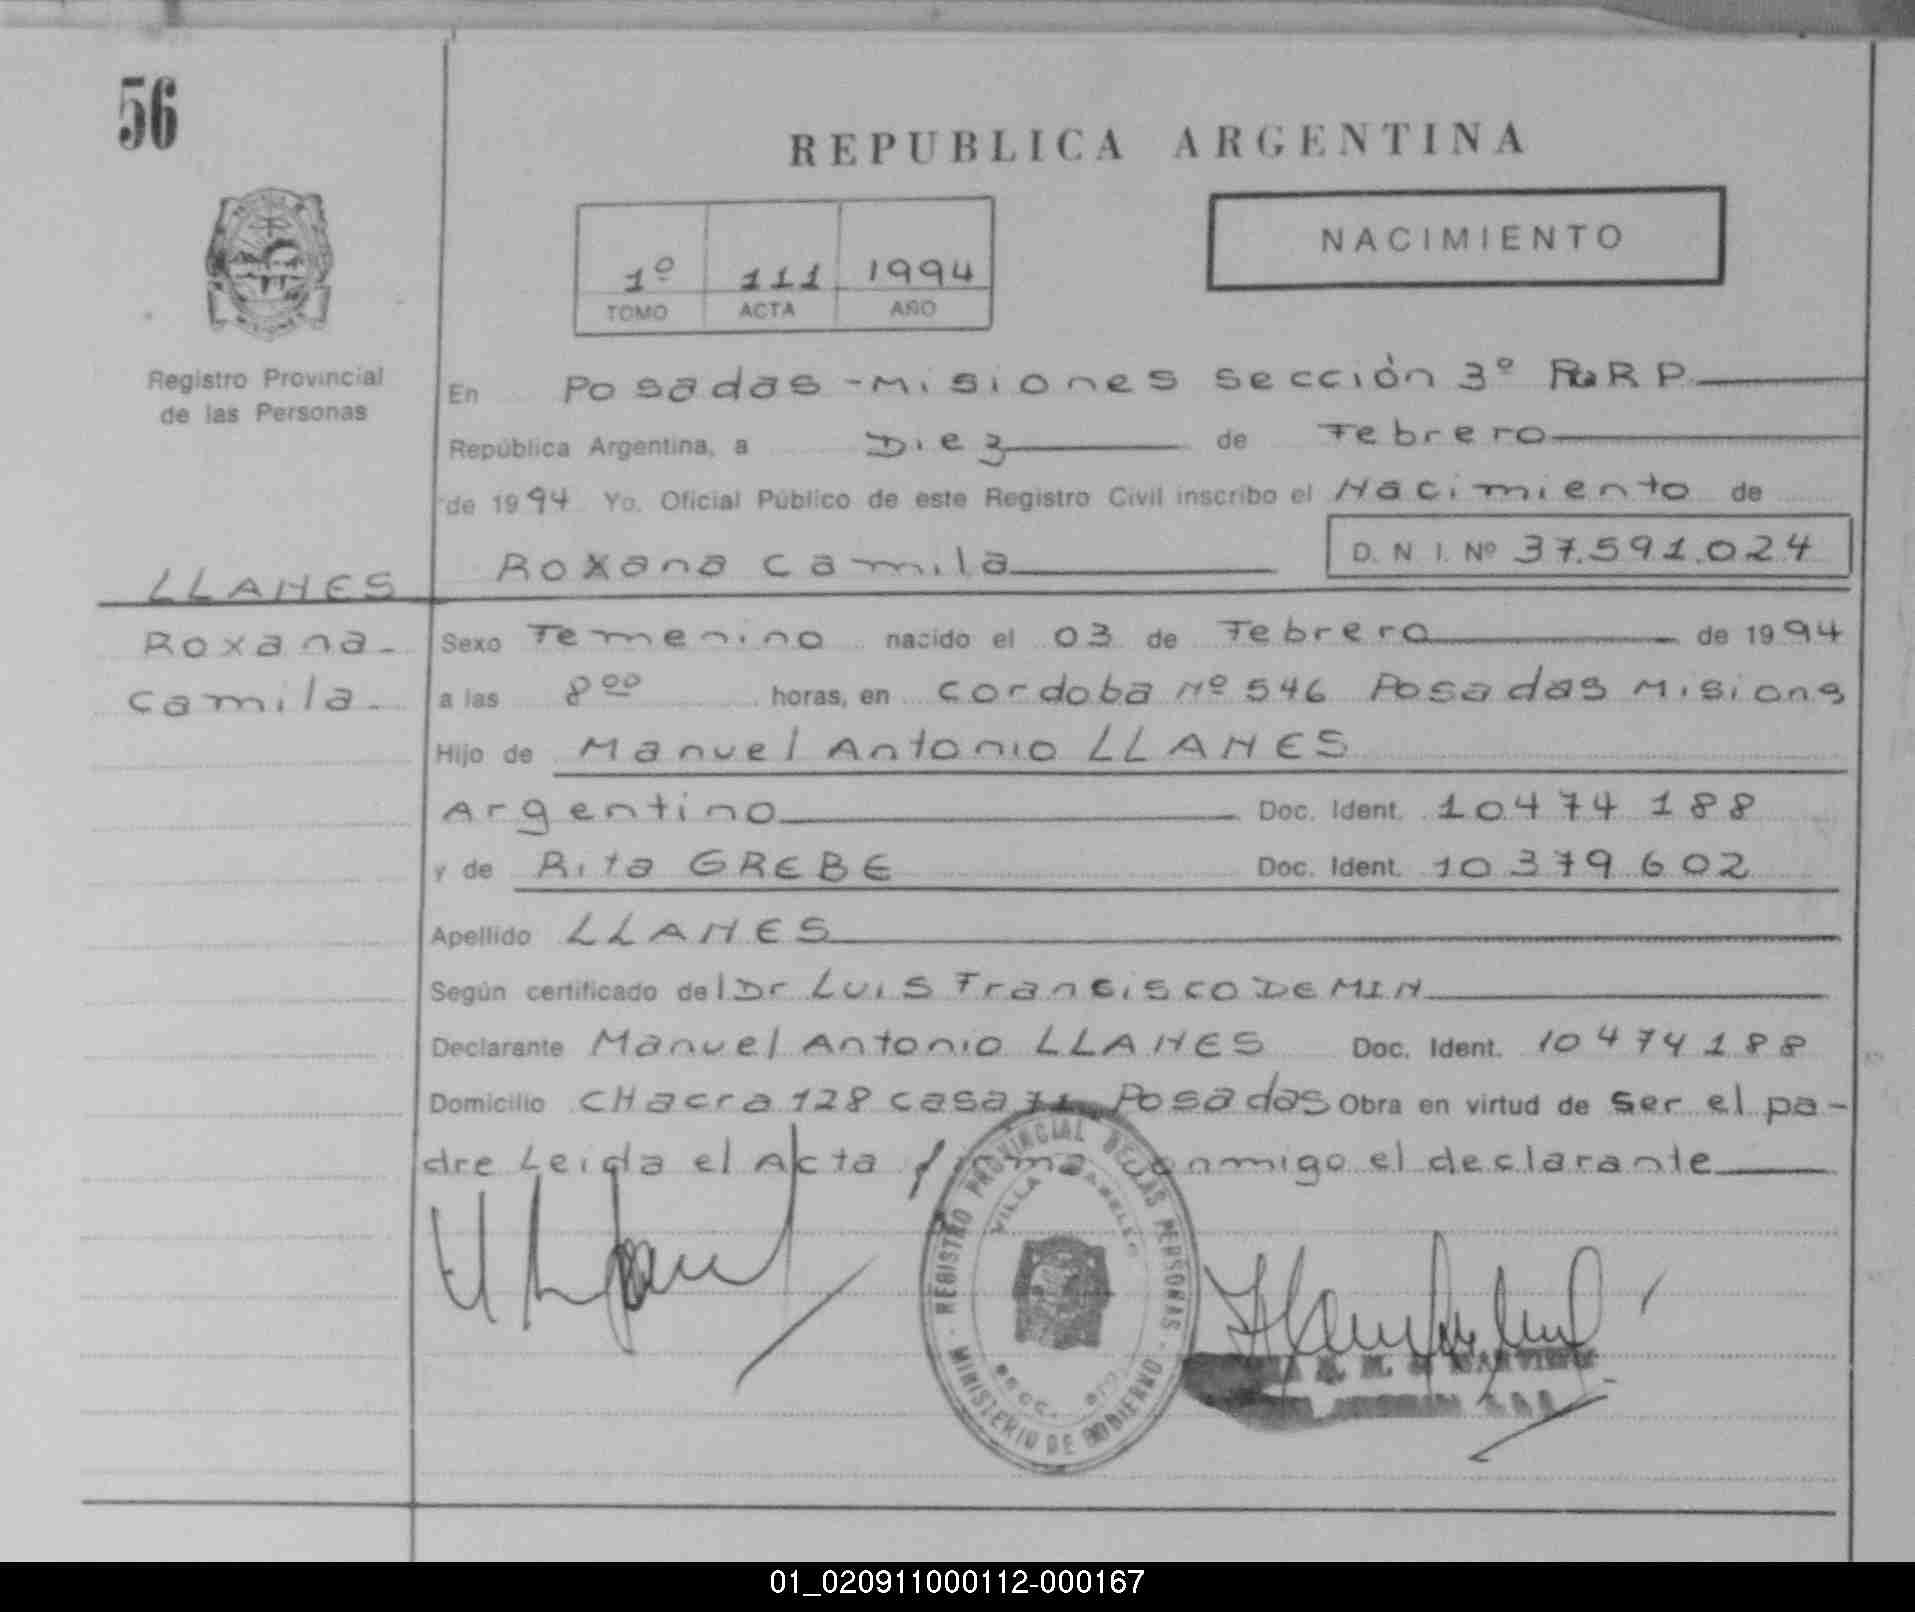 56
REPUBLICA ARGENTINA
NACIMIENTO
1º 111 1994
TOMO ACTA AÑO
Registro Provincial
de las Personas
En Posadas - Misiones Sección 3º R P
República Argentina, a Diez de Febrero
de 1994 Yo, Oficial Público de este Registro Civil inscribo el Nacimiento de
Roxana Camila
D. N. I. Nº 37.591.024
LLANES
Roxana
Camila
Sexo Femenino nacido el 03 de Febrero de 1994
a las 8 00 horas, en Cordoba Nº 546 Posadas Misions
Hijo de Manuel Antonio LLANES
Argentino Doc. Ident. 10474188
y de Rita GREBE Doc. Ident. 10379602
Apellido LLANES
Según certificado del Dr Luis Francisco DEMIN
Declarante Manuel Antonio LLANES Doc. Ident. 10474188
Domicilio CHacra 128 casa 71 Posadas Obra en virtud de ser el pa-
dre Leida el Acta firma conmigo el declarante
REGISTRO PROVINCIAL DE LAS PERSONAS
VILLA
MINISTERIO DE GOBIERNO
01_020911000112-000167